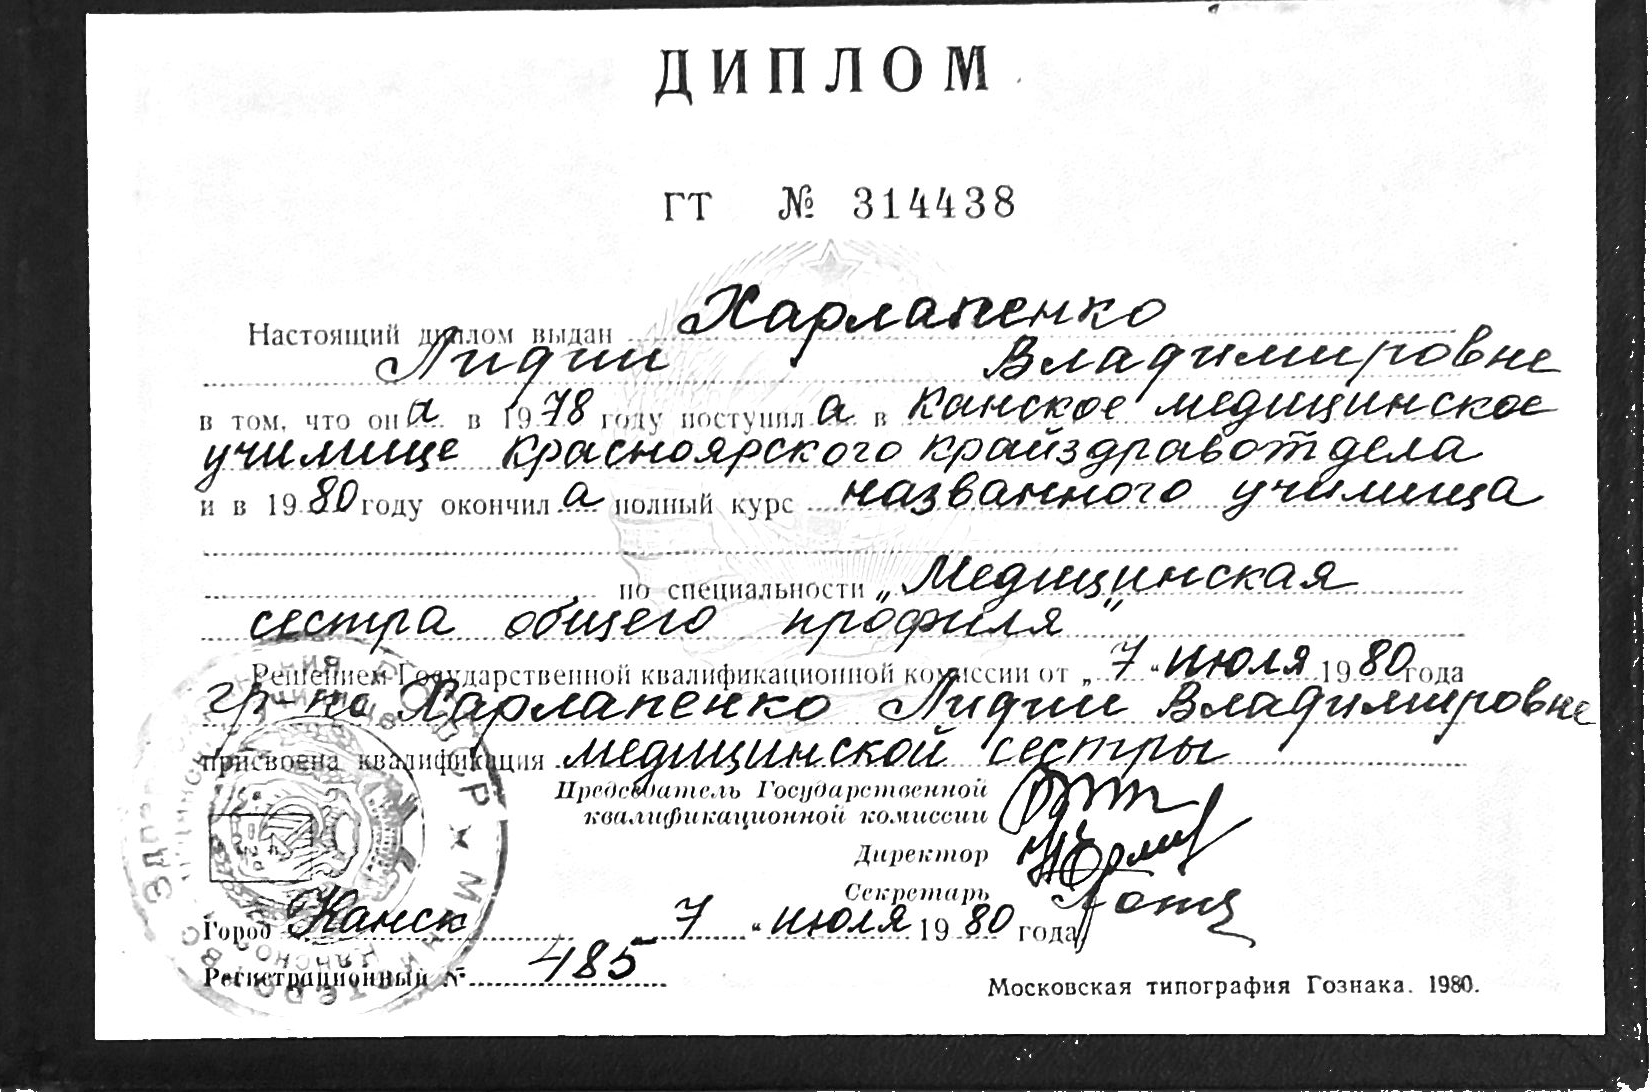 ДИПЛОМ
ГТ № 314438
Настоящий диплом выдан Харлапенко
Лидии Владимировне
в том, что она в 1978 году поступила в Канское медицинское
училище Красноярского крайздравотдела
и в 1980 году окончила полный курс названного училища
по специальности „Медицинская
сестра общего профиля"
Решением Государственной квалификационной комиссии от „7" июля 1980 года
гр-ке Харлапенко Лидии Владимировне
присвоена квалификация медицинской сестры
Председатель Государственной
квалификационной комиссии
Директор
Секретарь
Город Канск 7 " июля 1980 года
Регистрационный № 485
Московская типография Гознака. 1980.